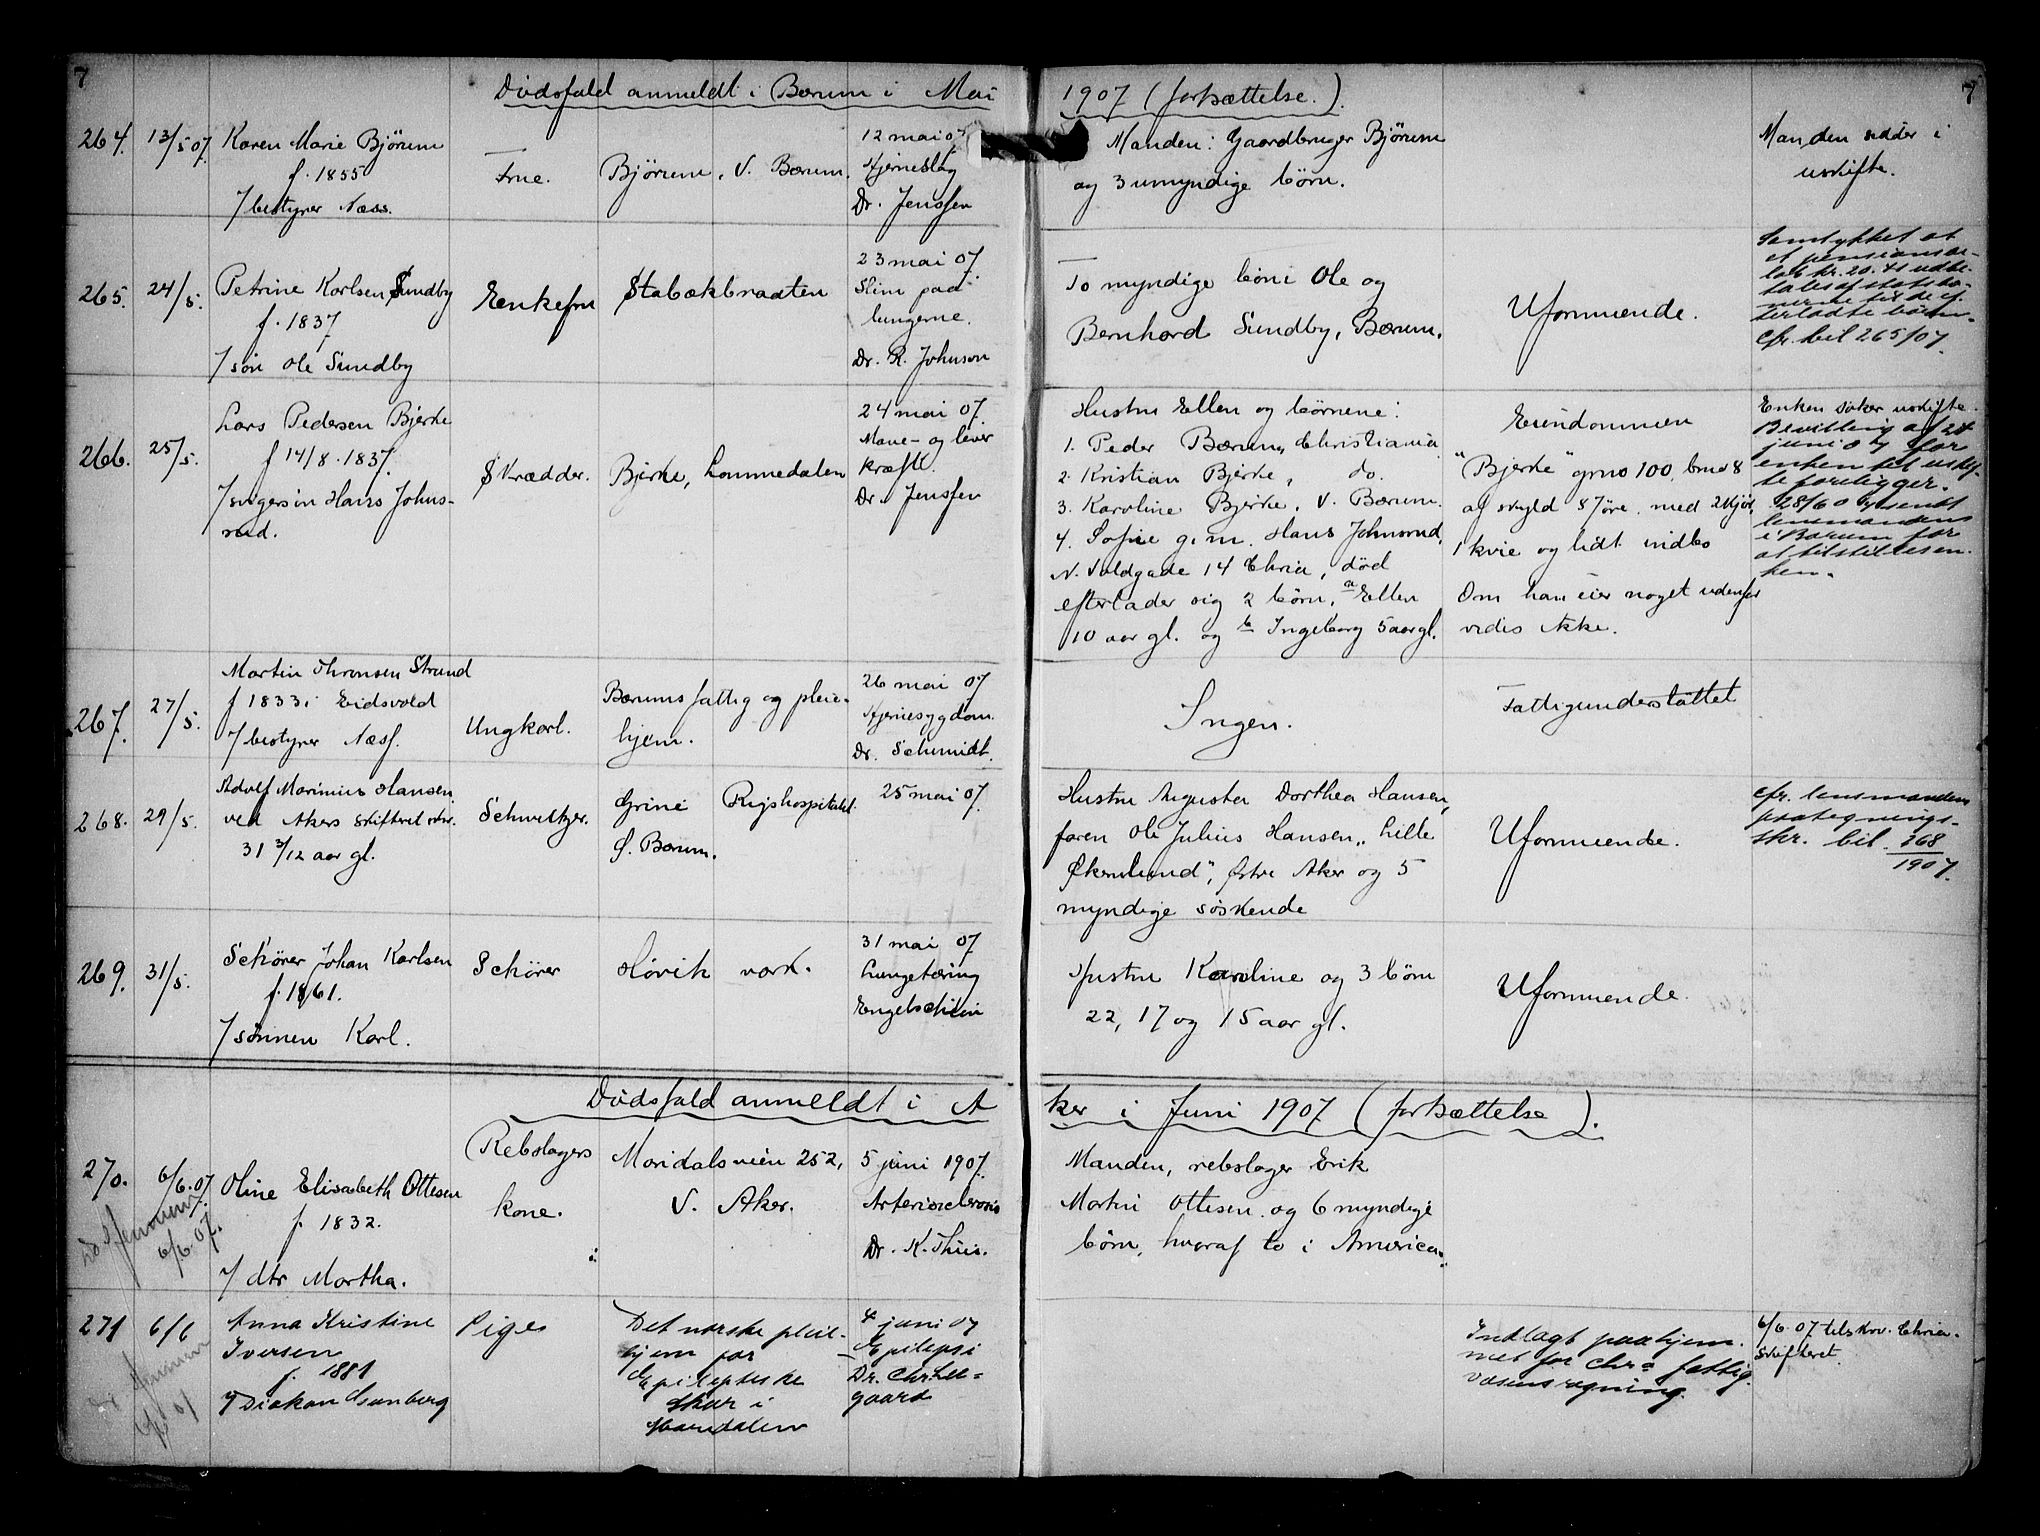 7
Dødsfald anmeldt i Bærum i Mai 1907 (fortsættelse.).
7
264.
13/5 07.
Karen Marie Bjørum
f. 1855
/ bestyrer Næss.
Frue.
Bjørum, V. Bærum.
12 mai 07
Hjerneslag
Dr. Jenssen
Manden: Gaardbruger Bjørum
og 3 umyndige børn.
Manden sidder i
uskifte.
265.
24/5.
Petrine Karlsen Sundby
f. 1837
/ søn Ole Sundby
Enkefru
Stabækbraaten
23 mai 07
Slim paa
lungerne.
Dr. R. Johnson
To myndige børn Ole og
Bernhard Sundby, Bærum.
Uformuende.
Samtykket at
et pensionsbe-
løb kr. 20.41 udbe-
tales af statsba-
nerne til de ef-
terladte børn.
Cfr. bil 265/07.
266.
25/5.
Lars Pedersen Bjerke
f 14/8. 1837.
/ svigersøn Hans Johns-
rud.
Skrædder.
Bjerke, Lommedalen
24 mai 07
Mave- og lever
kræft.
Dr. Jenssen
Hustru Ellen og børnene:
1. Peder Bærum, Christiania
2. Kristian Bjerke, do.
3. Karoline Bjerke, V. Bærum.
4. Sofie g. m. Hans Johnsrud,
N. Voldgade 14 Chria, død
efterlader sig 2 børn, a Ellen
10 aar gl. og b Ingeborg 5 aar gl.
Eiendommen
"Bjerke" grno 100, brno 8
af skyld 87 øre. med 2 kjør,
1 kvie og lidt indbo
Om han eier noget udenfor
vides ikke.
Enken søker uskifte.
Bevilling af 24
juni 07 for
enken til uskif-
te foreligger.
28/6 07 sendt
lensmanden
i Bærum for
at tilstilles en-
ken.
267.
27/5.
Martin Thronsen Strand
f 1833 i Eidsvold
/ bestyrer Næss.
Ungkarl.
Bærums fattig og pleie-
hjem.
26 mai 07
Hjernesygdom.
Dr. Schmidt.
Ingen.
Fattigunderstøttet
268.
29/5.
Adolf Marinius Hansen
ved Akers skifteret skr.
31 3/12 aar gl.
Schweitzer.
Grini Rigshospitalet.
Ø. Bærum.
25 mai 07.
Hustru Augusta Dorthea Hansen,
faren Ole Julius Hansen, "Lille
Økernlund", Østre Aker og 5
myndige søskende
Uformuende.
Cfr. lensmandens
paategnings-
skr. bil. 268
1907.
269.
31/5.
Schörer Johan Karlsen
f. 1861.
/ sønnen Karl.
Schörer
Høvik værk.
31 mai 07
Lungetæring
Engelschiøn
Hustru Karoline og 3 børn
22, 17 og 15 aar gl.
Uformuende.
Dødsfald anmeldt i Aker i Juni 1907 (fortsættelse).
270.
6/6.07.
6/6.07.
Oline Elisabeth Ottesen
f. 1832.
/ dtr Martha.
Rebslagers
kone.
Maridalsveien 252,
V. Aker.
5 juni 1907.
Arteriosclerosis
Dr. K. Thiis.
Manden, rebslager Erik
Martin Ottesen og 6 myndige
børn, hvoraf to i America.
271
6/6
Anna Kristine
Iversen
f. 1881
/ Diakon Isunberg
Pige
Det norske pleie-
hjem for
Epileptiske
Skar i
Maridalen
4 juni 07
Epilepsi
Dr. Christe-
gaard
Indlagt paa hjem-
met for Chr.a fattig-
væsens regning.
6/6.07 tilskrv. Chria.
skifteret.